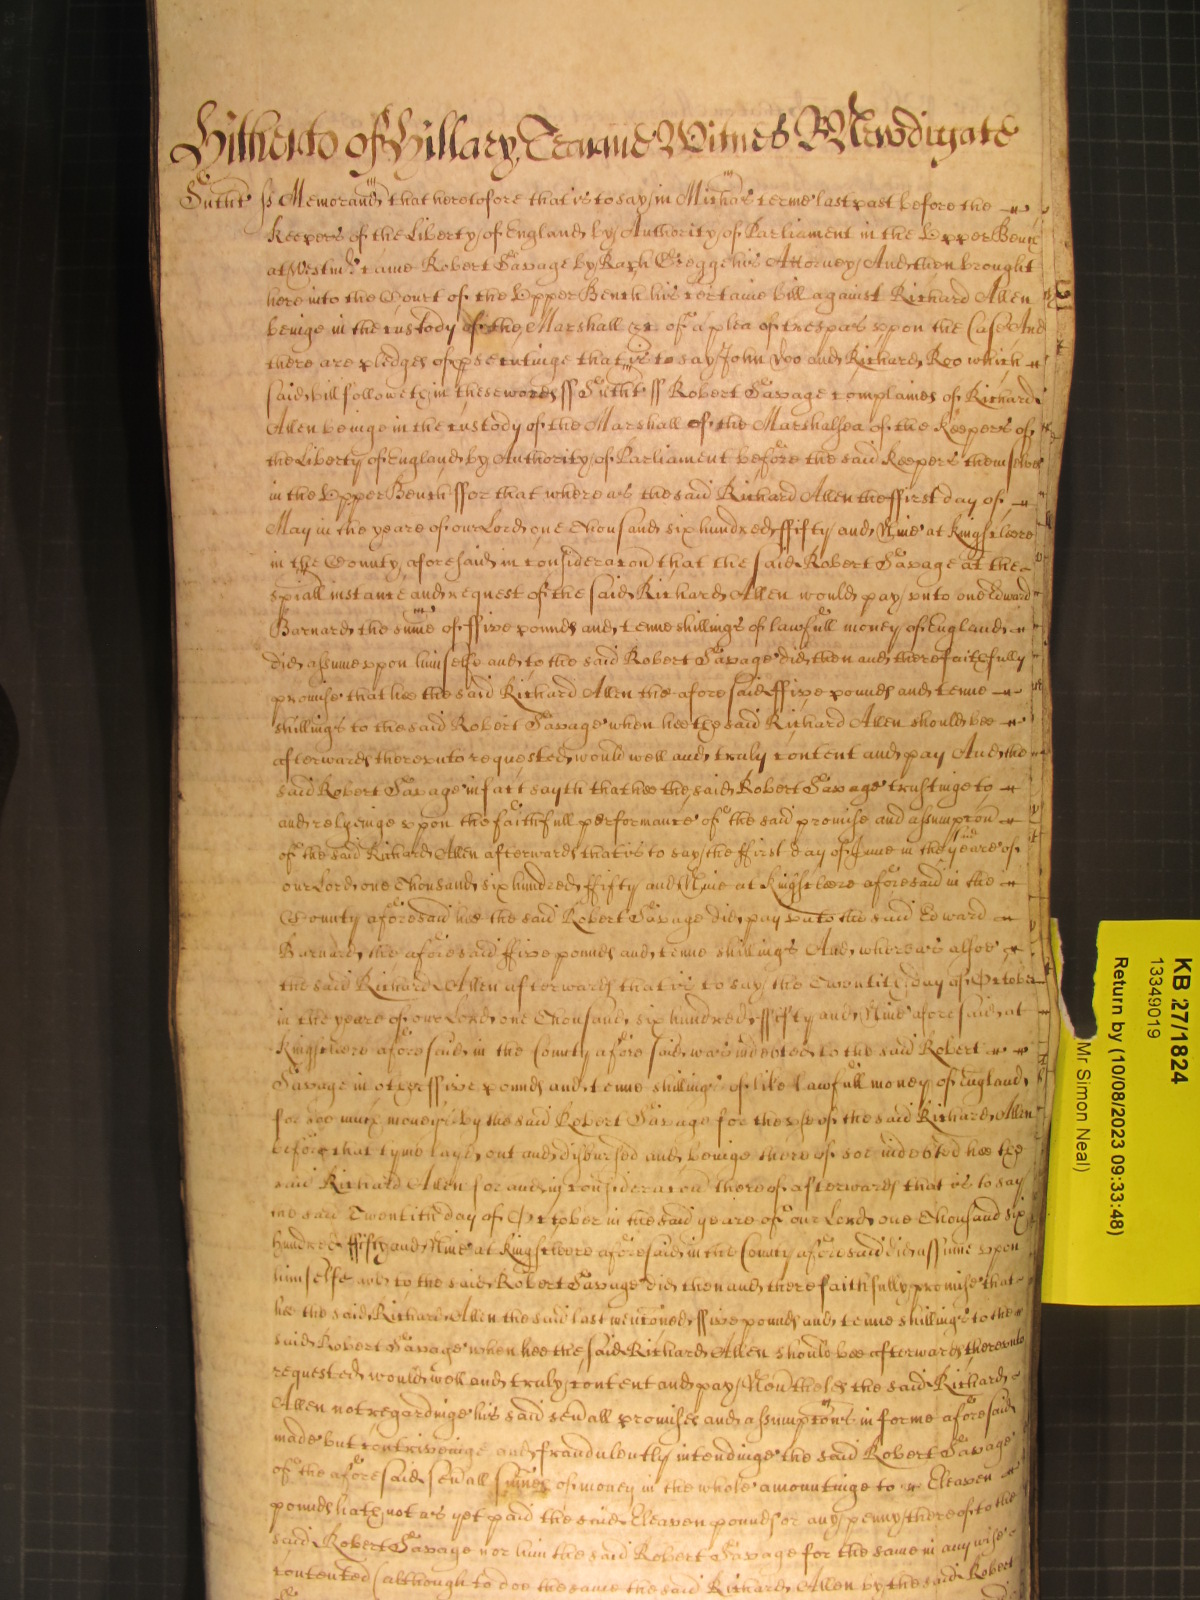 Hitherto of Hillary Tearme Witnes R Newdigate
Sutht ss Memorand that heretofore that is to say in Michas terme last past before the
Keepers of the Liberty of England by Authority of Parliament in the Upper Bench
at Westmr came Robert Savage by Raph Gregge his Attorney And then brought
here into the Court of the Upper Bench his certaine bill against Richard Allen
beinge in the custody of the Marshall &c of a plea of trespas uppon the Case And
there are pledges of psecutinge that is to say John Doo and Richard Roo which
said bill followeth in these words ss Sutht ss Robert Savage complaines of Richard
Allen beinge in the custody of the Marshall of the Marshalsea of the Keepers of
the Liberty of England by Authority of Parliament before the said Keepers themselves
in the Upper Bench ffor that whereas the said Richard Allen the ffirst day of
May in the yeare of our Lord one Thousand six hundred ffifty and Nine at Kingscleere
in the County aforesaid in consideracon that the said Robert Savage at the
spiall instance and request of the said Richard Allen would pay unto one Edward
Barnard the sume of ffive pounds and tenne shillings of lawfull money of England
did assume uppon himselfe and to the said Robert Savage did then and there faithfully
promise that hee the said Richard Allen the aforesaid ffive pounds and tenne
shillings to the said Robert Savage when hee the said Richard Allen should bee
afterwards thereunto requested would well and truly content and pay And the
said Robert Savage in fact sayth that hee the said Robert Savage trustinge to
and relyeinge upon the faithfull performance of the said promise and assumpcon
of the said Richard Allen afterwards that is to say the ffirst day of June in the said yeare of
our Lord one Thousand six hundred ffifty and Nine at Kingscleere aforesaid in the
County aforesaid hee the said Robert Savage did pay unto the said Edward
Barnard the aforesaid ffive pounds and tenne shillings And whereas alsoe
the said Richard Allen afterwards that is to say the Twentith day of October
in the yeare of our Lord one Thousand six hundred ffifty and Nine aforesaid at
Kingscleere aforesaid in the County aforesaid was indebted to the said Robert
Savage in other ffive pounds and tenne shillings of like lawfull money of England
for soe much money by the said Robert Savage for the use of the said Richard Allen
before that tyme layd out and disbursed and beinge thereof soe indebted hee the
said Richard Allen for and in consideracon thereof afterwards that is to say
the said Twentith day of October in the said yeare of our Lord one Thousand six
hundred ffifty and Nine at Kingscleere aforesaid in the County aforesaid did assume upon
himselfe and to the said Robert Savage did then and there faithfully promise that
hee the said Richard Allen the said last menconed ffive pounds and tenne shillings to the
said Robert Savage when hee the said Richard Allen should bee afterwards thereunto
requested would well and truly content and pay Nevertheles the said Richard
Allen not regardinge his said sevall promises and assumpcons in forme aforesaid
made but contriveinge and fraudulently intendinge the said Robert Savage
of the aforesaid sevall sumes of money in the whole amountinge to Eleaven
pounds hath not as yet paid the said Eleaven pounds or any penny thereof to the
said Robert Savage nor him the said Robert Savage for the same in any wise
contented (although to doe the same the said Richard Allen by the said Robert
KB 27/1824
13349019
Return by (10/08/2023 09:33:48)
Mr Simon Neal)